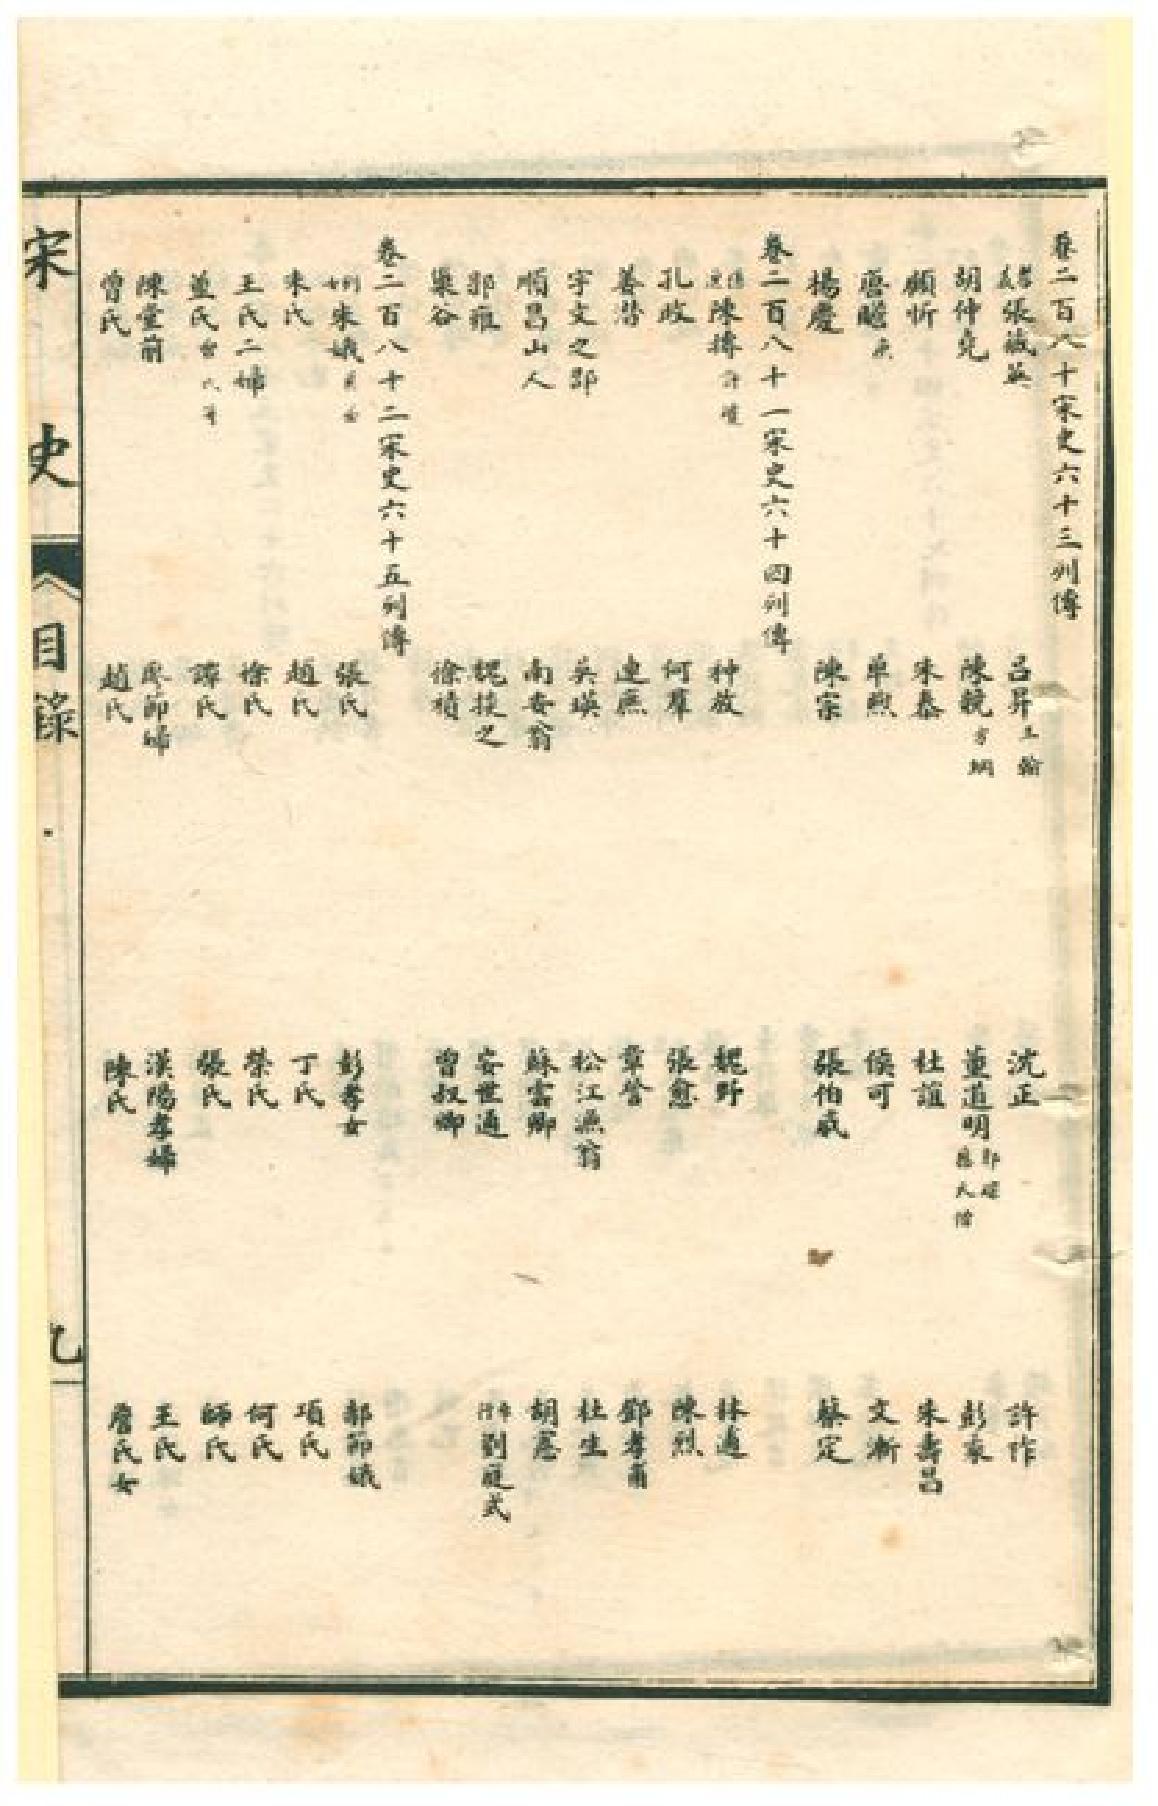 卷二百八十宋史六十三列傳
孝義 張藏英 呂昇 王翰 沈正 許祚
胡仲堯 陳兢 方綱 董道明 郭琮 應天 彭乘
顧忻 朱泰 杜誼 朱壽昌
瞻 侯可 文漸
楊慶 陳宗 張伯威 蔡定
卷二百八十一宋史六十四列傳
陳摶 許 种放 魏野 林逋
孔旼 何羣 張愈 陳烈
連庶 章詧 鄧孝甫
宇文之邵 吳瑛 松江漁翁 杜生
順昌山人 南安翁 蘇雲卿 胡憲
郭雍 魏掞之 安世通 劉庭式
巢谷 徐積 曾叔卿
卷二百八十二宋史六十五列傳
列女 朱娥 張氏 彭孝女 郝節娥
朱氏 趙氏 丁氏 項氏
王氏二婦 徐氏 榮氏 何氏
董氏 譚氏 張氏 師氏
陳堂前 廖節婦 漢陽孝婦 王氏
曾氏 趙氏 陳氏 詹氏女
宋史
目錄
九